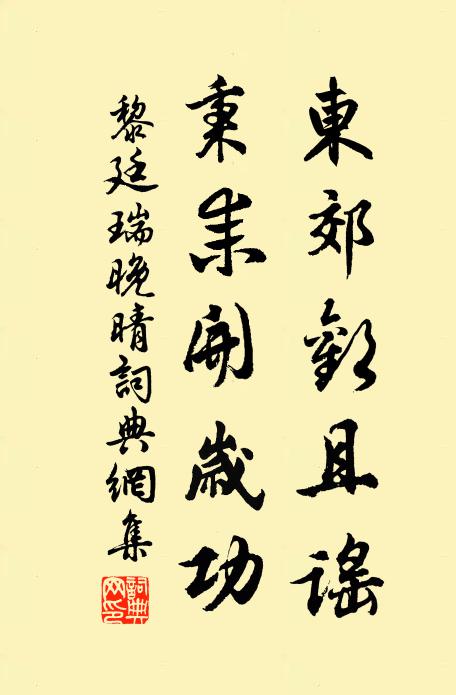 東郊歡且謠
秉耒開歲功
黎廷瑞晚晴詞典網集
詞典网印